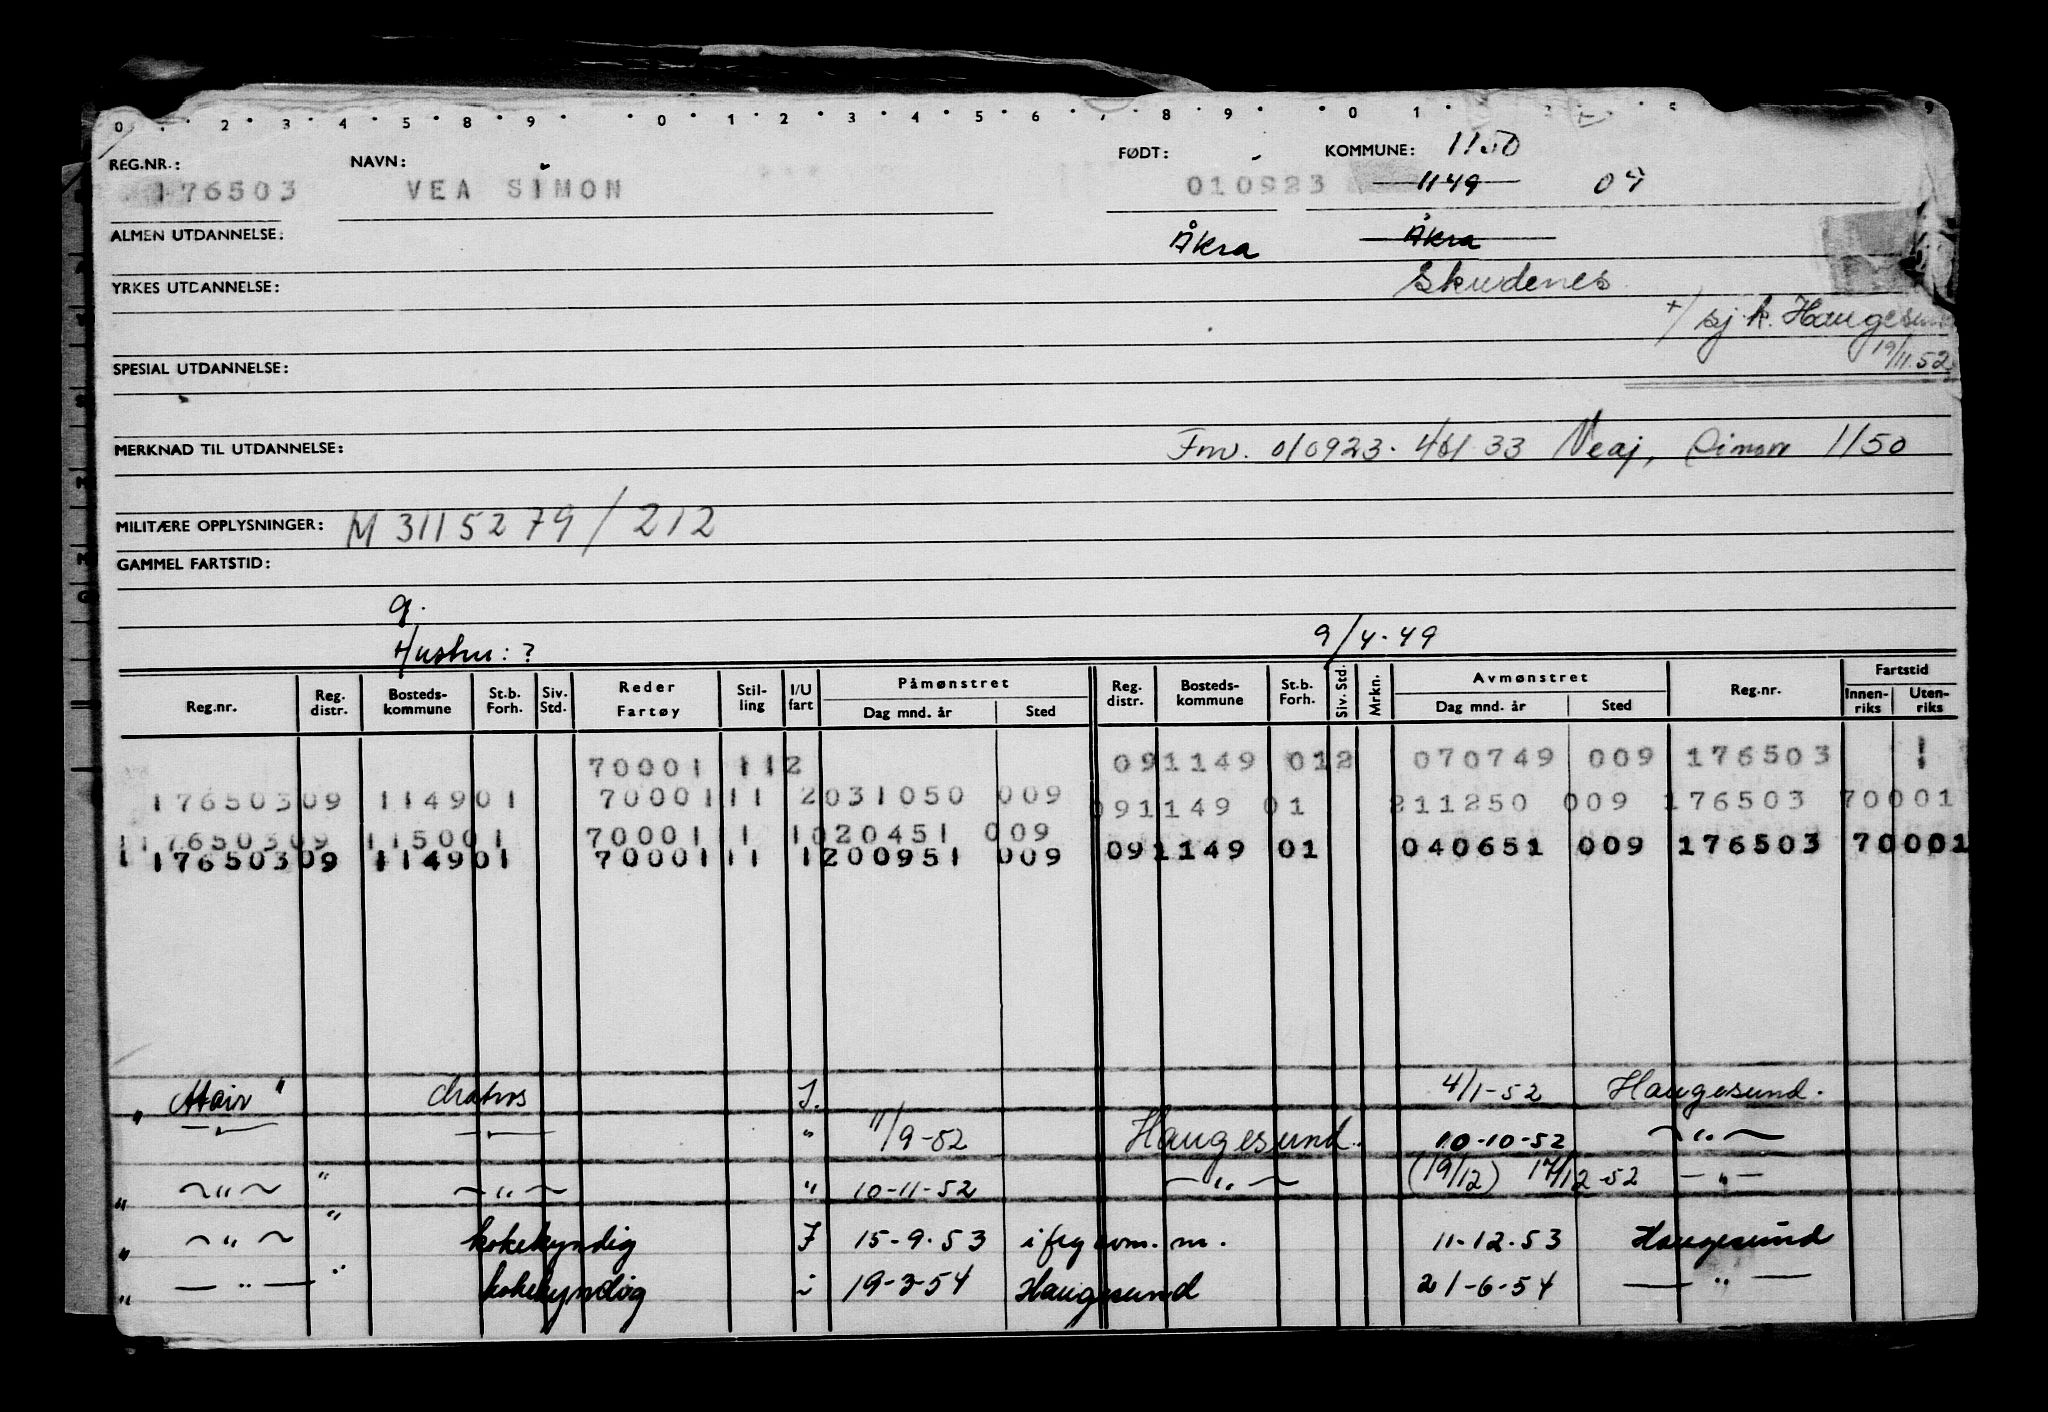 0 2 3 4 5 8 9 0 1 2 3 4 5 6 8 9 0 1
REG.NR.: NAVN: FØDT: KOMMUNE: 1150
176503 VEA SIMON 010923 1149 07
ALMEN UTDANNELSE: Åkra Åkra
YRKES UTDANNELSE: Skudenes
+/ sj k. Haugesund
19/11.52
SPESIAL UTDANNELSE:
MERKNAD TIL UTDANNELSE: Fm. 010923. 461 33 Veaj, Simon 1150
MILITÆRE OPPLYSNINGER: M 3115279/212
GAMMEL FARTSTID:
g.
Hustru: ? 9/4.49
Reg.nr. Reg. distr. Bosteds- kommune St.b. Forh. Siv. Std. Reder Fartøy Stil- ling I/U fart Påmønstret Dag mnd. år Sted Reg. distr. Bosteds- kommune St.b. Forh. Siv. Std. Mrkn. Avmønstret Dag mnd. år Sted Reg.nr. Fartstid Innen- riks Uten- riks
70001 112 091149 012 070749 009 176503 1
17650309 114901 7000111 2031050 009 091149 01 211250 009 176503 70001
1 17650309 115001 7000111 1020451 009
1 17650309 114901 7000111 1200951 009 091149 01 040651 009 176503 70001
" Atair " Matros I. 4/1-52 Haugesund.
—"— —"— " 11/9-52 Haugesund. 10-10-52 —"—
" —"— " —"— " 10-11-52 —"— (19/12) 17/12-52 —"—
" —"— " kokekyndig I 15-9-53 i flg avm. m. 11-12-53 Haugesund
" —"— " kokekyndig i 19-3-54 Haugesund 21-6-54 —"—